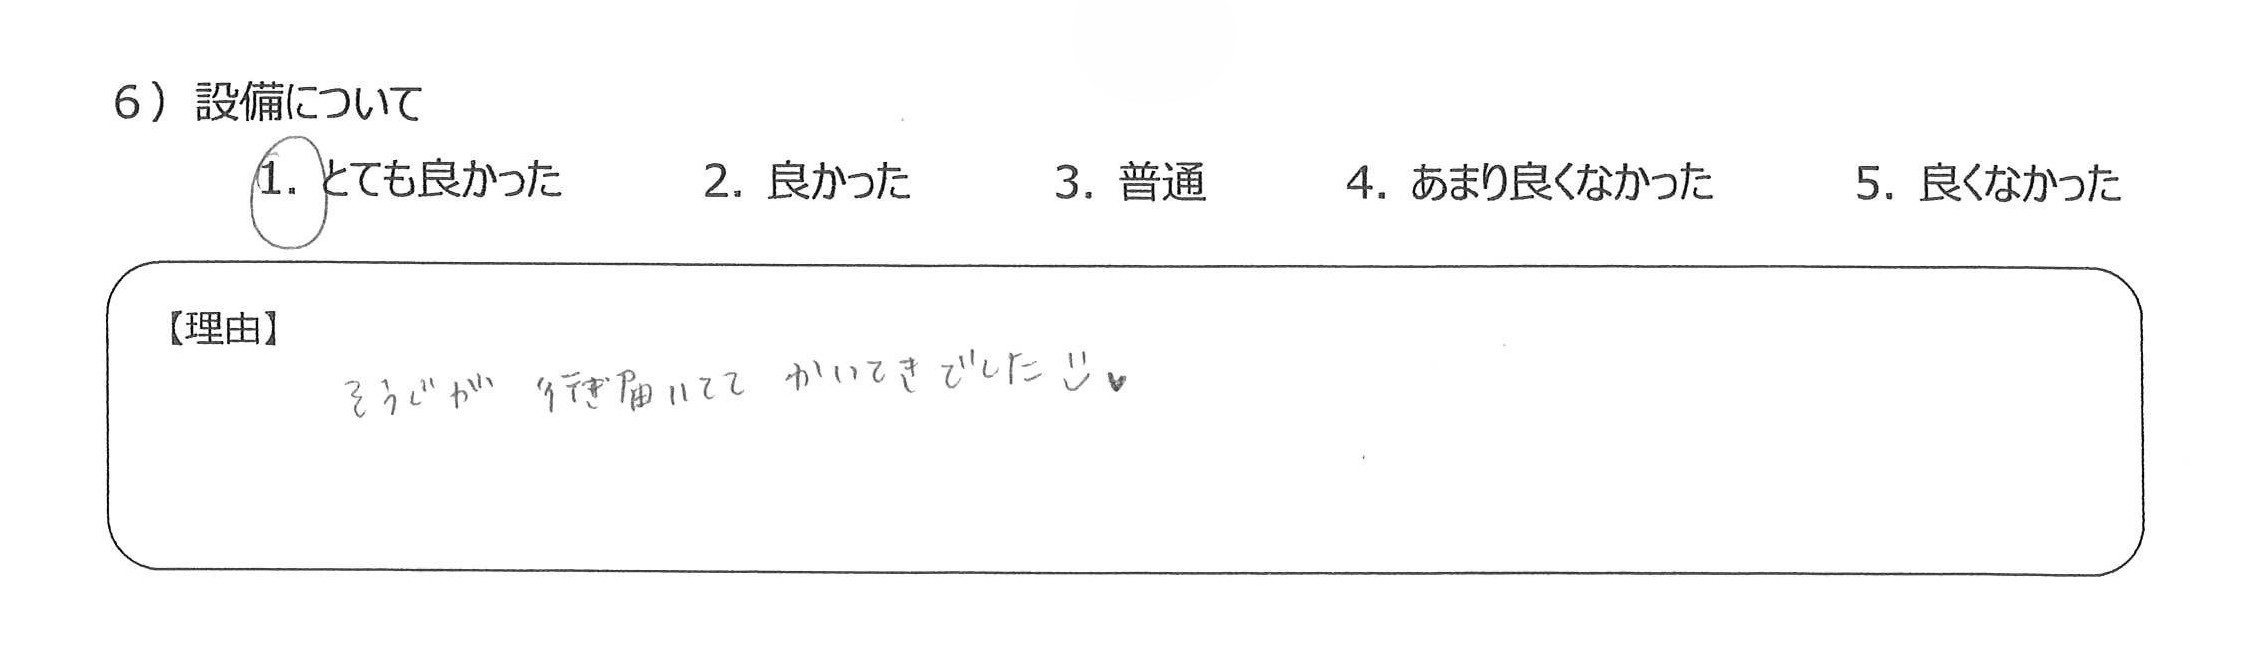 6）設備について
1. とても良かった 2. 良かった 3. 普通 4. あまり良くなかった 5. 良くなかった
【理由】
そうじが 行き届いてて かいてきでした